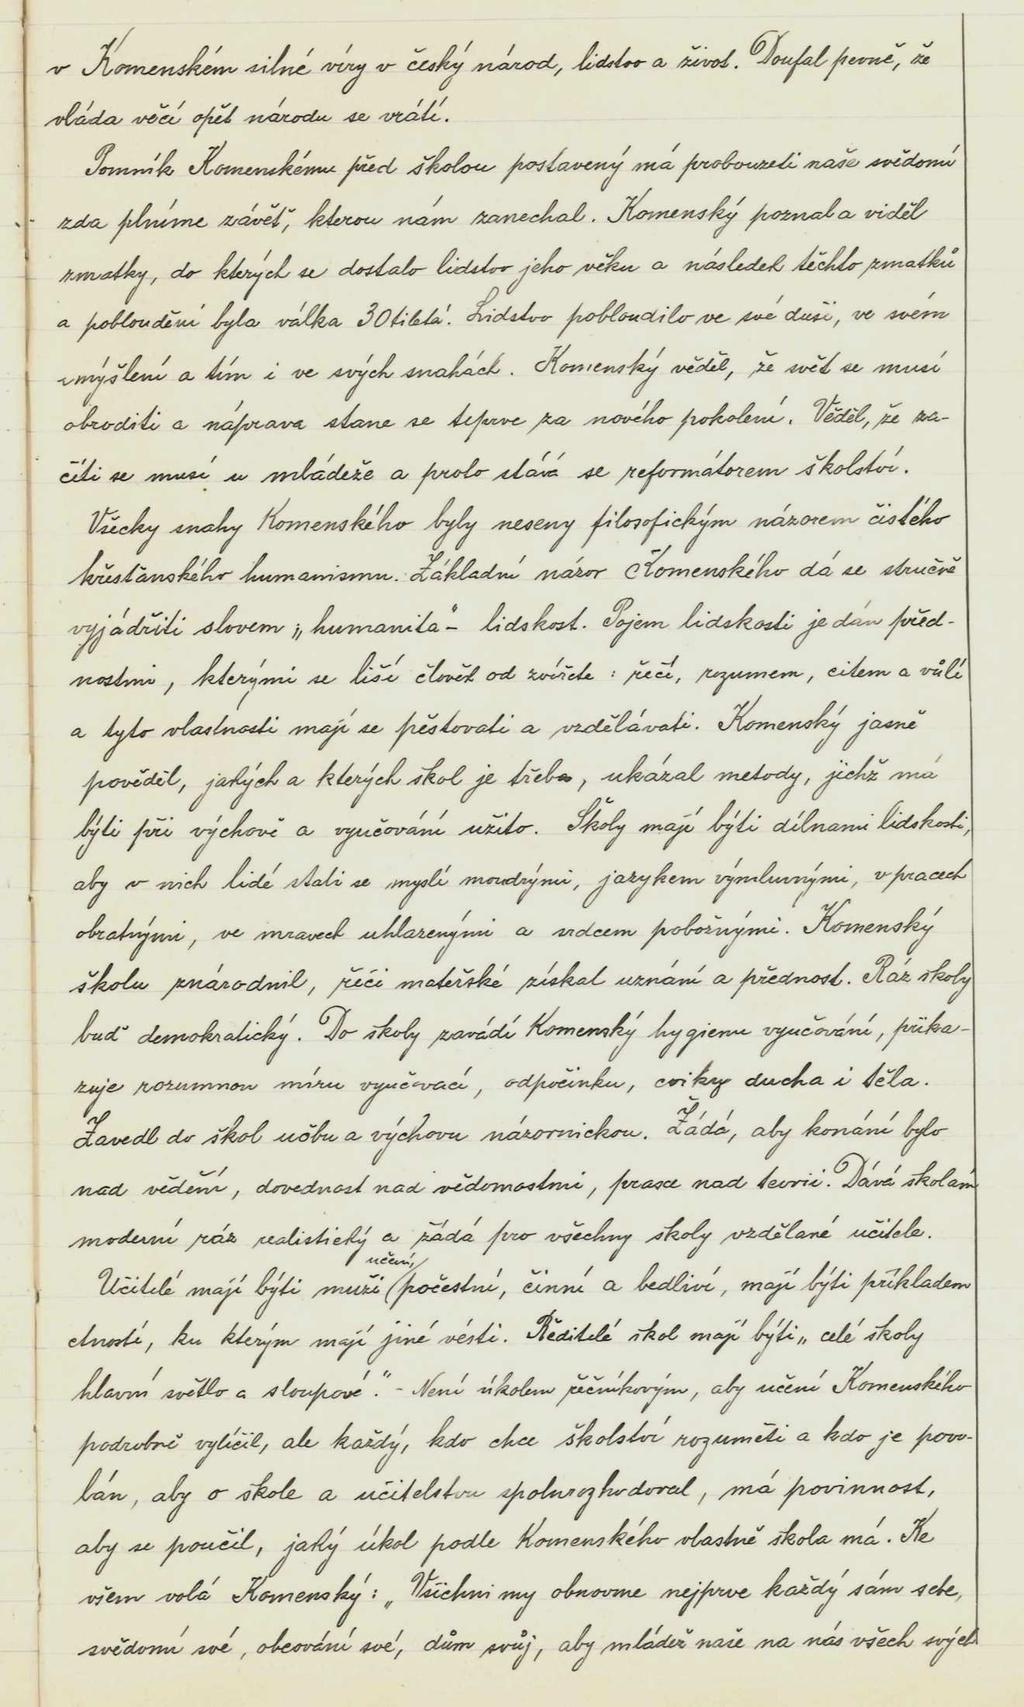 v Komenském silné víry v český národ, lidstvo a život. Doufal pevně, že
vláda věcí opět národu se vrátí.
Pomník Komenskému před školou postavený má probouzeti naše svědomí
zda plníme závěť, kterou nám zanechal. Komenský poznal a viděl
zmatky, do kterých se dostalo lidstvo jeho věku a následek těchto zmatků
a pobloudění byla válka 30tiletá. Lidstvo pobloudilo ve své duši, ve svém
smýšlení a tím i ve svých snahách. Komenský věděl, že svět se musí
obroditi a náprava stane se teprve za nového pokolení. Věděl, že za-
číti se musí u mládeže a proto stává se reformátorem školství.
Všecky snahy Komenského byly neseny filosofickým názorem čistého
křesťanského humanismu. Základní názor Komenského dá se stručně
vyjádřiti slovem „humanita“ - lidskost. Pojem lidskosti je dán před-
nostmi, kterými se liší člověk od zvířete: řečí, rozumem, citem a vůlí
a tyto vlastnosti mají se pěstovati a vzdělávati. Komenský jasně
pověděl, jakých a kterých škol je třeba, ukázal metody, jichž má
býti při výchově a vyučování užito. Školy mají býti dílnami lidskosti,
aby v nich lidé stali se myslí moudrými, jazykem výmluvnými, v pracech
obratnými, ve mravech uhlazenými a srdcem pobožnými. Komenský
školu znárodnil, řéči mateřské získal uznání a přednost. Ráz školy
buď demokratický. Do školy zavádí Komenský hygienu vyučování, přika-
zuje rozumnou míru vyučovací, odpočinku, cviky ducha i těla.
Zavedl do škol učbu a výchovu názornickou. Žádá, aby konání bylo
nad vědění, dovednost nad vědomostmi, praxe nad teorii. Dává školám
moderní ráz realistický a žádá pro všechny školy vzdělané učitele.
učení,
Učitelé mají býti muži (počestní, činní a bedliví, mají býti příkladem
ctností, ku kterým mají jiné vésti. Ředitelé škol mají býti „celé školy
hlavní světlo a sloupové.“ - Není úkolem řečníkovým, aby učení Komenského
podrobně vylíčil, ale každý, kdo chce školství rozuměti a kdo je povo-
lán, aby o škole a učitelstvu spolurozhodoval, má povinnost,
aby se poučil, jaký úkol podle Komenského vlastně škola má. Ke
všem volá Komenský: „Všichni my obnovme nejprve každý sám sebe,
svědomí své, obcování své, dům svůj, aby mládež naše na nás všech svých